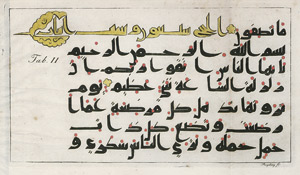 ما تصفون الحج
بسم الله الرحمن الرحيم
Tab. II
يايها الناس اتقوا ربكم ان
زلزلة الساعة شي عظيم يوم
ترونها تذهل كل مرضعة عما ا
رضعت وتضع كل ذات
حمل حملها وترى الناس سكرى و